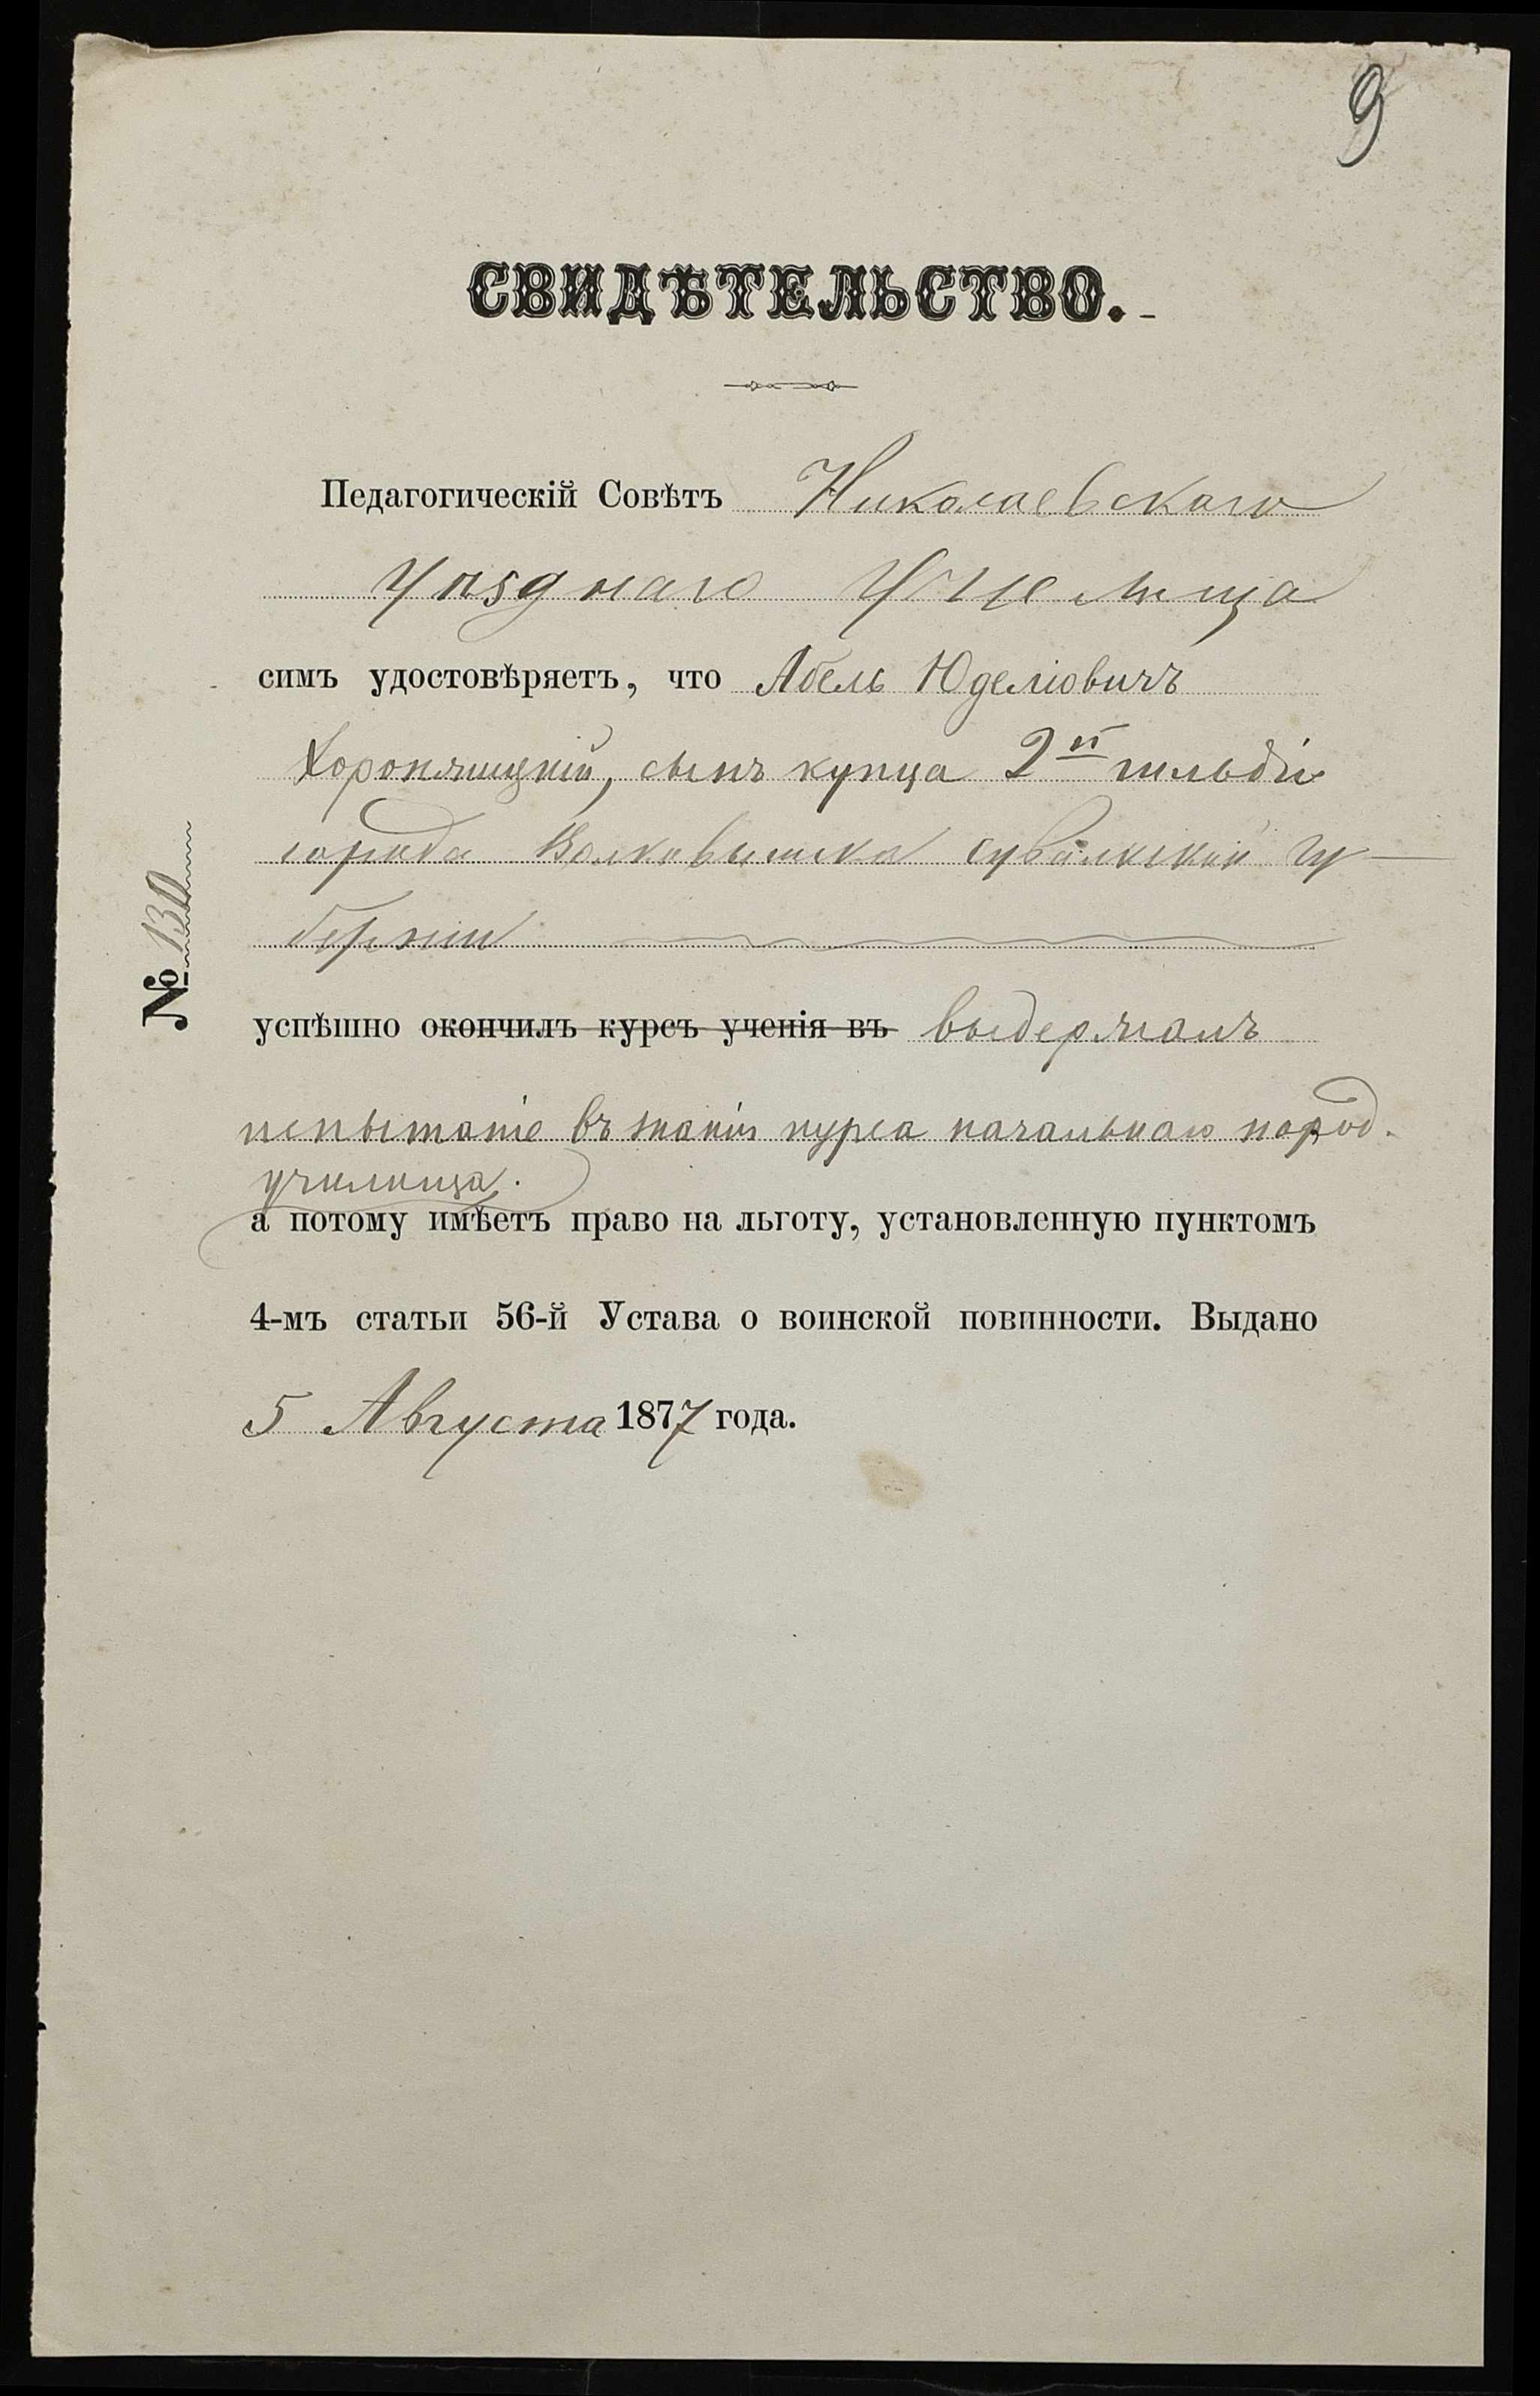 9
СВИДѢТЕЛЬСТВО.
Педагогическій Совѣтъ Николаевскаго
Уѣзднаго Училища
симъ удостовѣряетъ, что Абель Юделіовичъ
сынъ купца 2й гильдіи
города Волковышска Сувалкской гу-
берніи
№ 130
успѣшно окончилъ курсъ ученія въ выдержалъ
испытаніе въ знаніи курса начальнаго народ.
училища.
а потому имѣетъ право на льготу, установленную пунктомъ
4-мъ статьи 56-й Устава о воинской повинности. Выдано
5 Августа 1877 года.